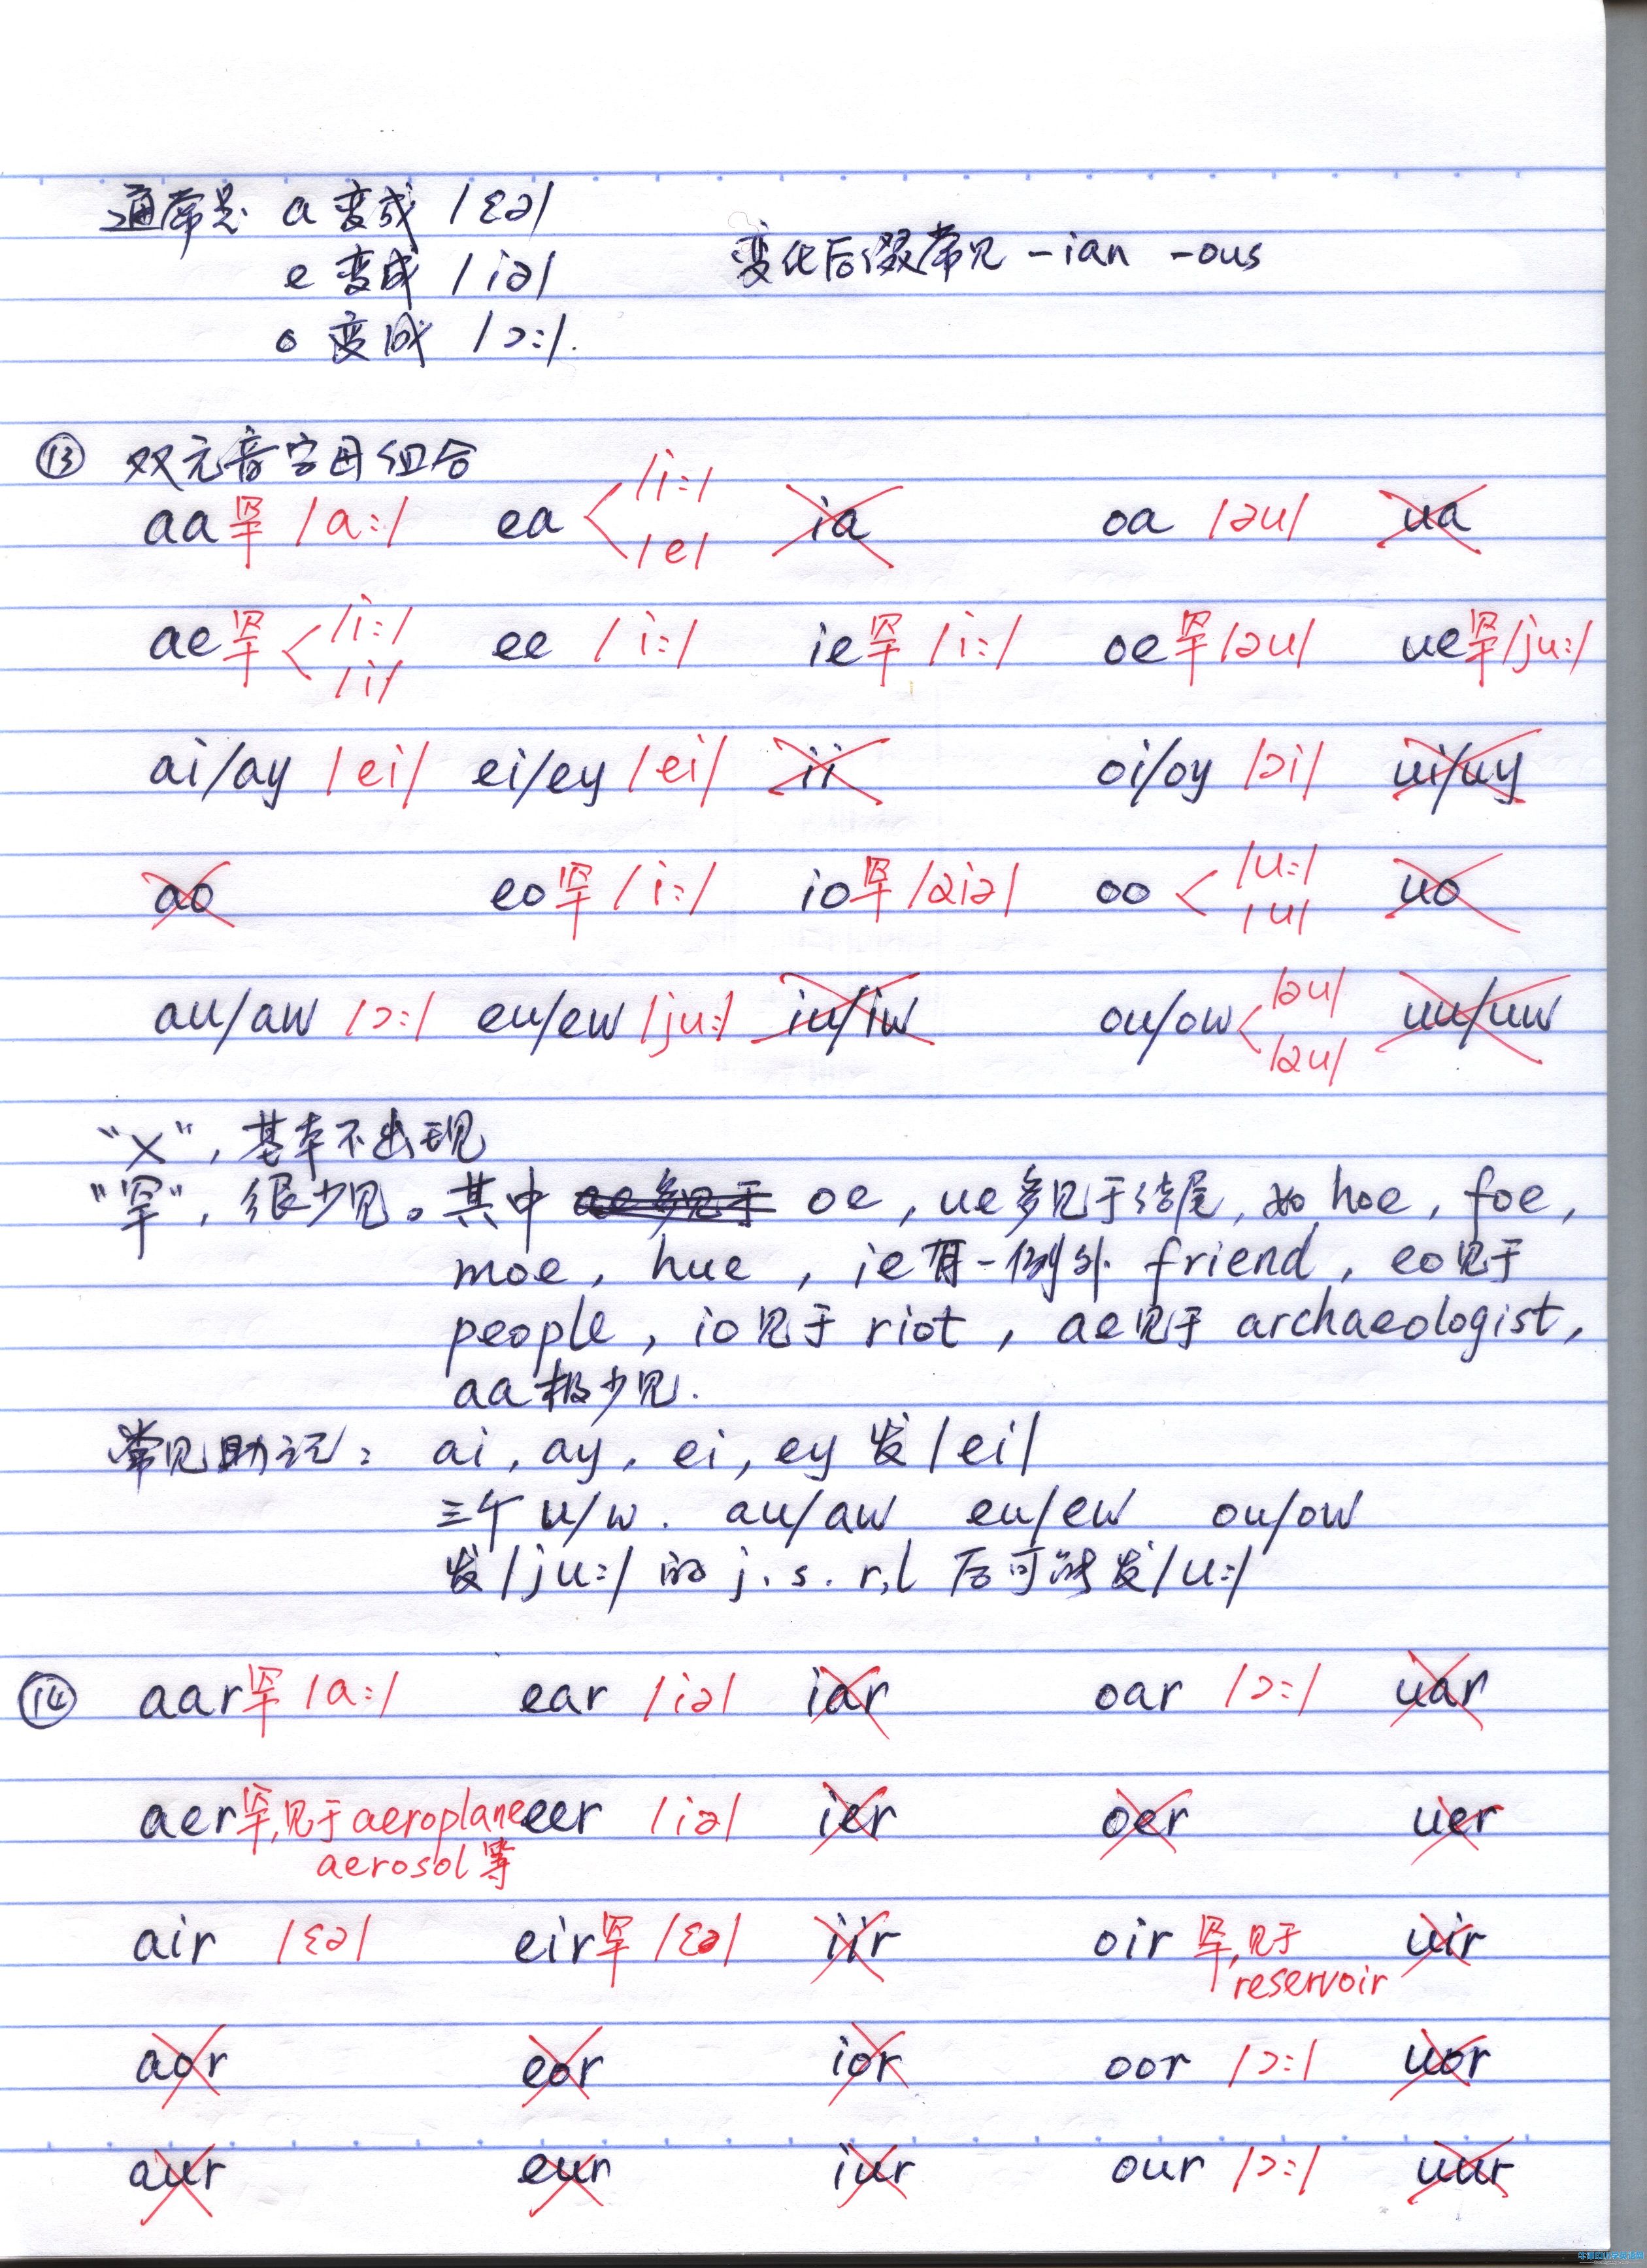 通常是 a 变成 /ɛə/
e 变成 /iə/ 变化后缀常见 -ian -ous
o 变成 /ɔ:/.
⑬ 双元音字母组合
aa罕 /a:/ ea /i:/ /e/ ia oa /əu/ ua
ae罕 /i:/ /i/ ee /i:/ ie罕 /i:/ oe罕 /əu/ ue罕 /ju:/
ai/ay /ei/ ei/ey /ei/ ii oi/oy /ɔi/ ui/uy
ao eo罕 /i:/ io罕 /aiə/ oo /u:/ /u/ uo
au/aw /ɔ:/ eu/ew /ju:/ iu/iw ou/ow /əu/ /au/ uu/uw
"X", 基本不出现
"罕", 很少见。其中 ae多见于 oe, ue多见于结尾, 如 hoe, foe,
moe, hue, ie有一例外 friend, eo见于
people, io见于 riot, ae见于 archaeologist,
aa极少见.
常见助记: ai, ay, ei, ey 发/ei/
三个 u/w. au/aw eu/ew ou/ow
发/ju:/ 的 j. s. r, l 后可能发/u:/
⑭ aar罕 /a:/ ear /iə/ iar oar /ɔ:/ uar
aer罕, 见于 aeroplane eer /iə/ ier oer uer
aerosol 等
air /ɛə/ eir罕 /ɛə/ iir oir 罕, 见于 uir
reservoir
aor eor ior oor /ɔ:/ uor
aur eur iur our /ɔ:/ uur